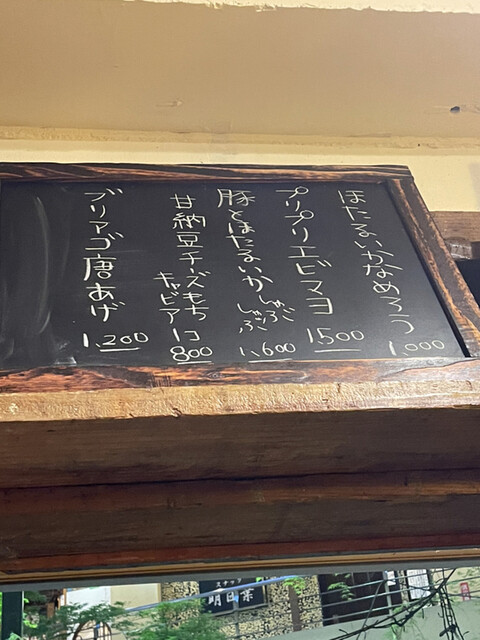 ほたるいかなめろう
1,000
プリプリエビマヨ
1500
豚とほたるいか
しゃぶしゃぶ
1,600
甘納豆チーズもち
キャビア
1コ
800
ブリアゴ唐あげ
1,200
スナック
明日葉